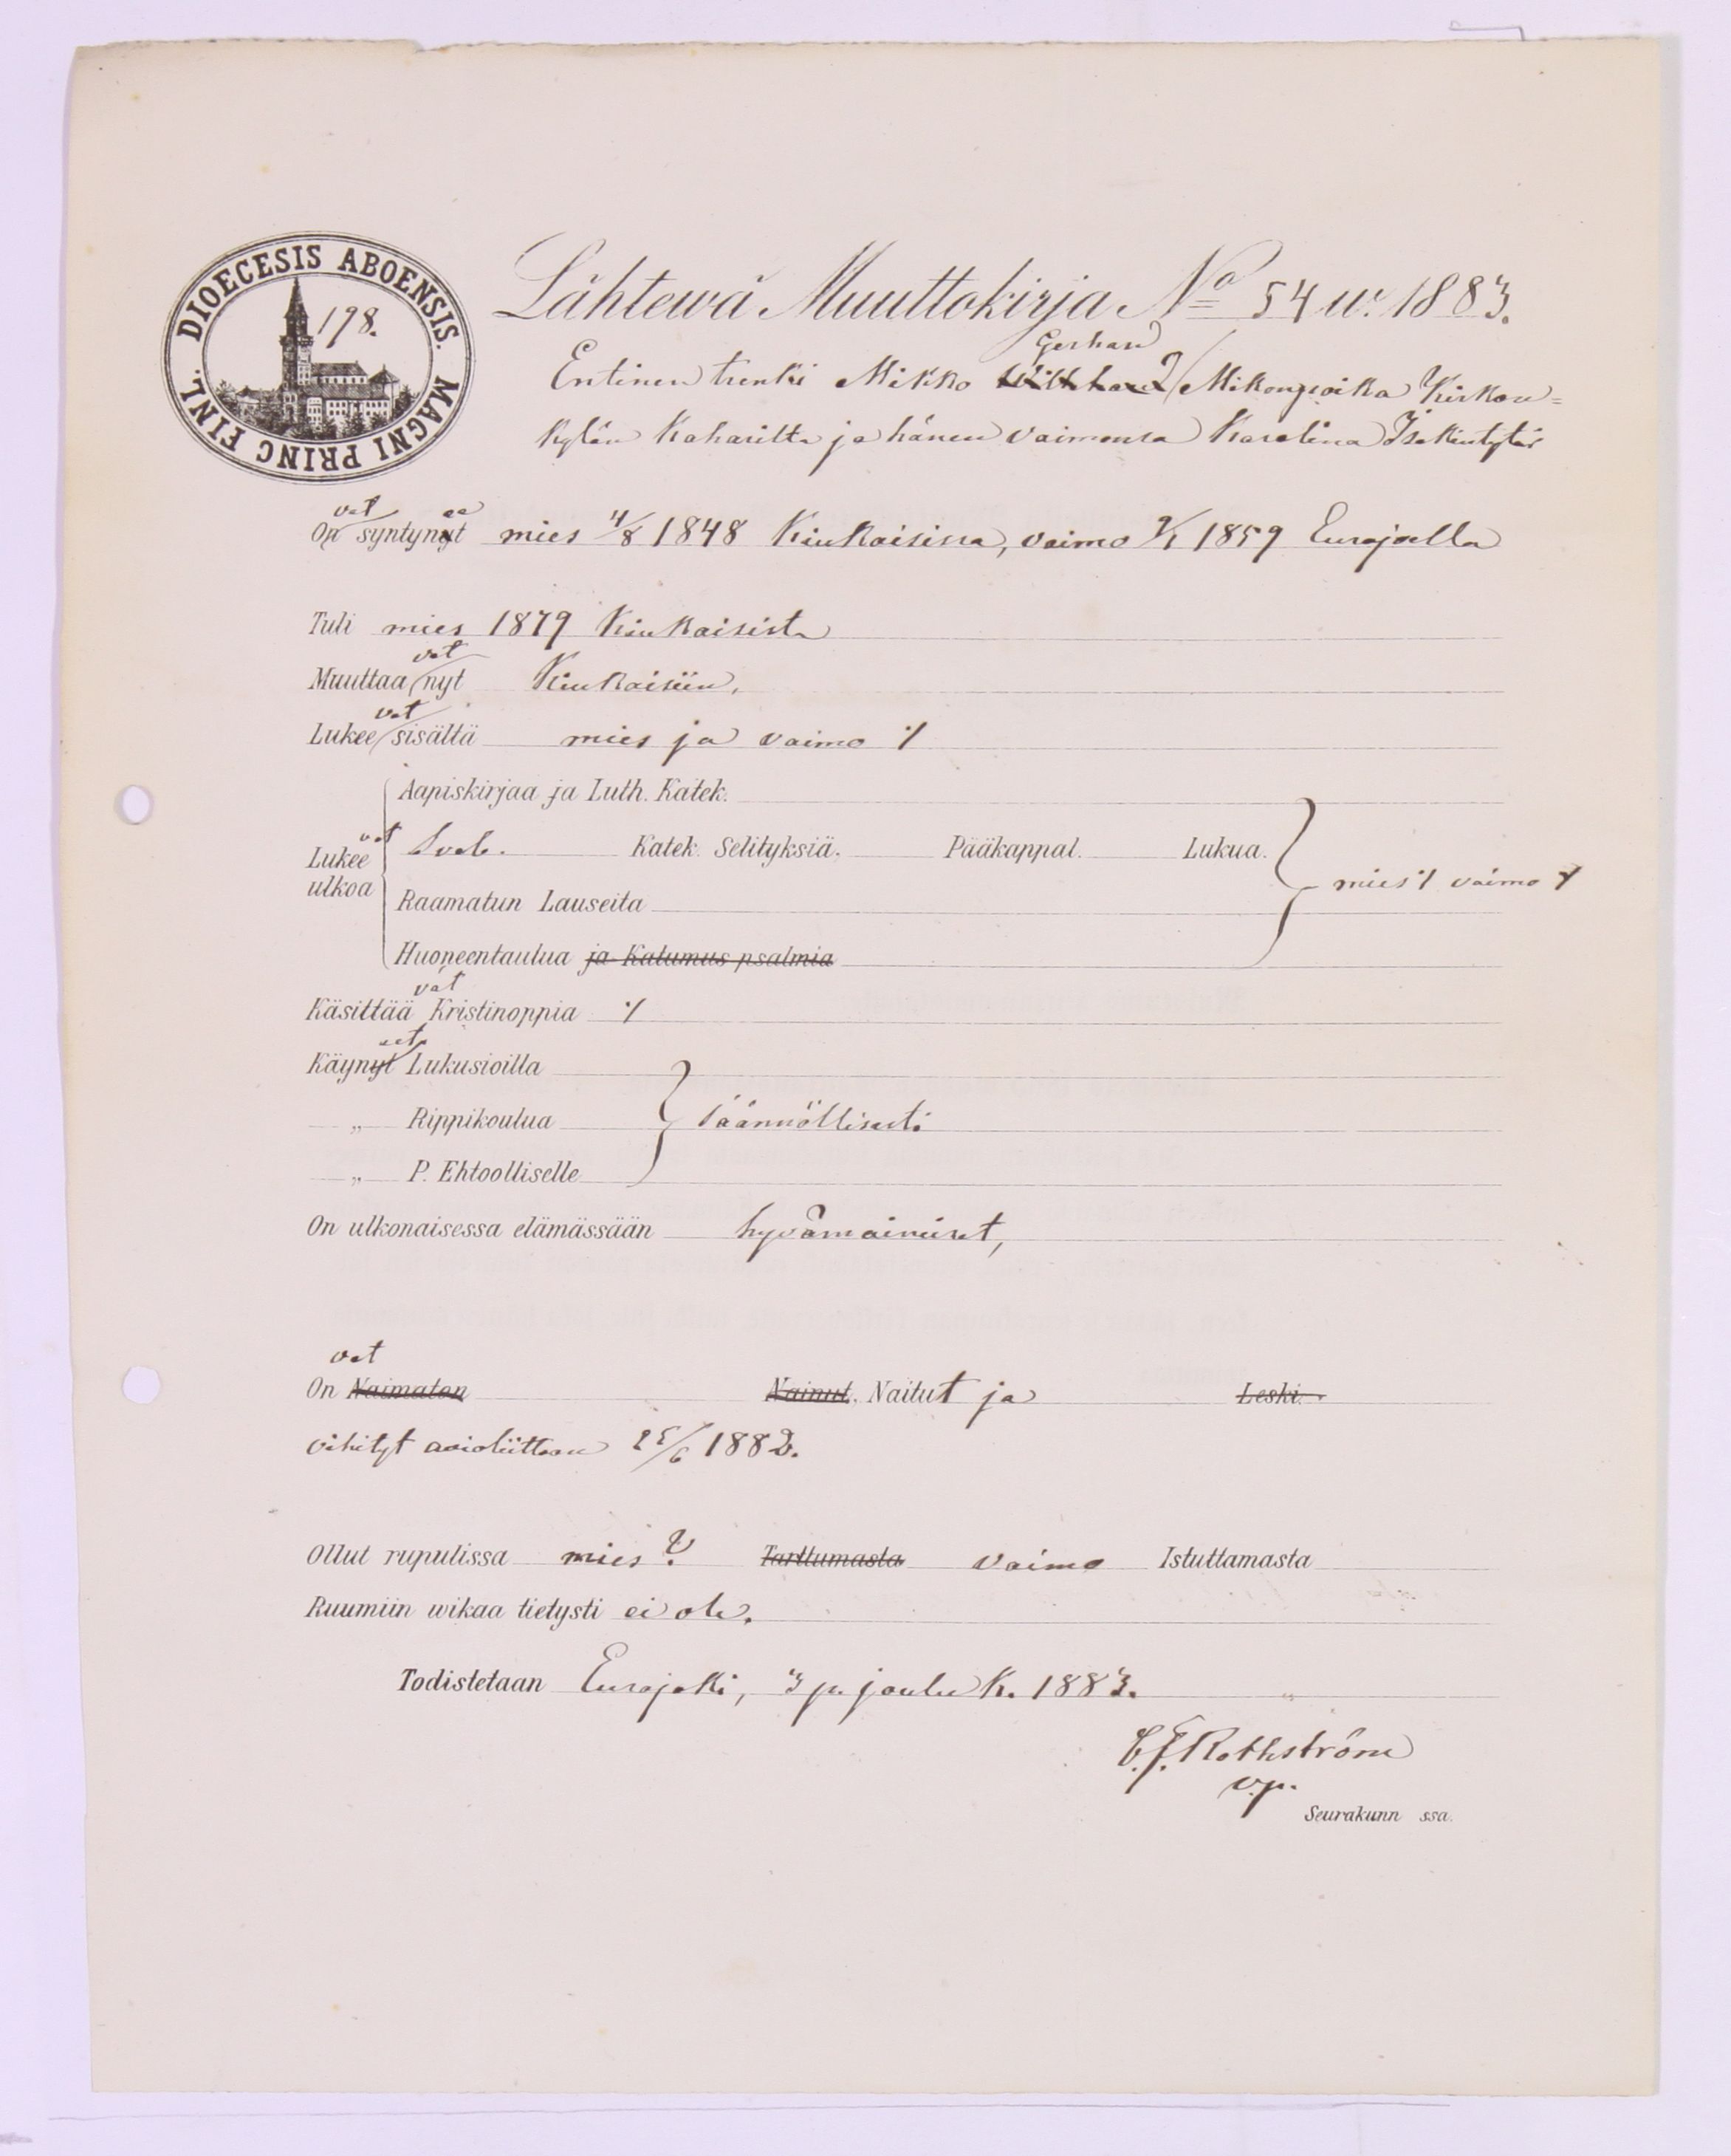 DIOECESIS ABOENSIS. MAGNI PRINC FINL.
198.
Lähtewä Muuttokirja No 54 w. 1883.
Gerhard
Entinen trenki Mikko Mikonpoika Kirkon=
kylän Kaharilta ja hänen vaimonsa Karolina Isakintytär
vat ee
On syntynyt mies 4/8 1848 Kiukaisissa, vaimo 9/1 1859 Eurajoella
Tuli mies 1879 Kiukaisista
vat
Muuttaa nyt Kiukaisiin.
vat
Lukee sisältä mies ja vaimo ·/
Aapiskirjaa ja Luth. Katek.
vat
Lukee ulkoa Sveb. Katek. Selityksiä. Pääkappal. Lukua. mies ·/ vaimo ·/
Raamatun Lauseita
Huoneentaulua ja Katumus psalmia
vat
Käsittää Kristinoppia ·/
eet
Käynyt Lukusioilla
„ Rippikoulua säännöllisesti
„ P. Ehtoolliselle
On ulkonaisessa elämässään hyvämainiset,
vat
On Naimaton Nainut. Naitut ja Leski.
vihityt avioliittoon 25/6 1882.
Ollut rupulissa mies ? Tarttumasta vaimo Istuttamasta
Ruumiin wikaa tietysti ei ole.
Todistetaan Eurajoki, 3 p. jouluk. 1883.
C.F. Rothström
v.p.
Seurakunn ssa.